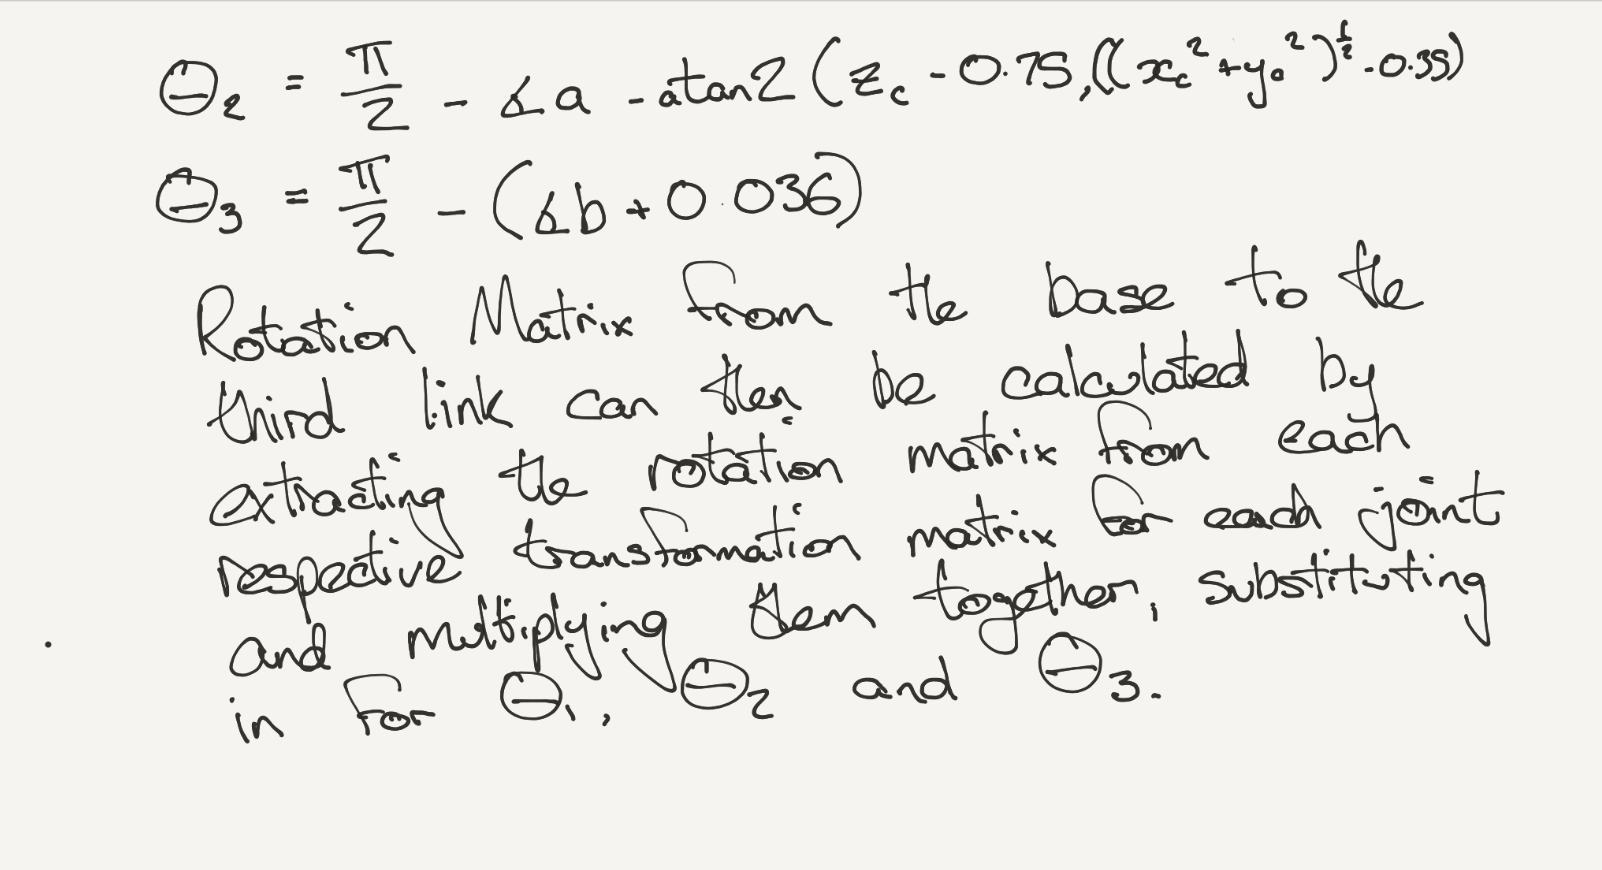 θ₂ = π/2 - ∡a - atan2(z_c - 0.75, ((x_c² + y_c²)^½ - 0.35)
θ₃ = π/2 - (∡b + 0.036)
Rotation Matrix from the base to the
third link can then be calculated by
extracting the rotation matrix from each
respective transformation matrix for each joint
and multiplying them together, substituting
in for θ₁, θ₂ and θ₃.